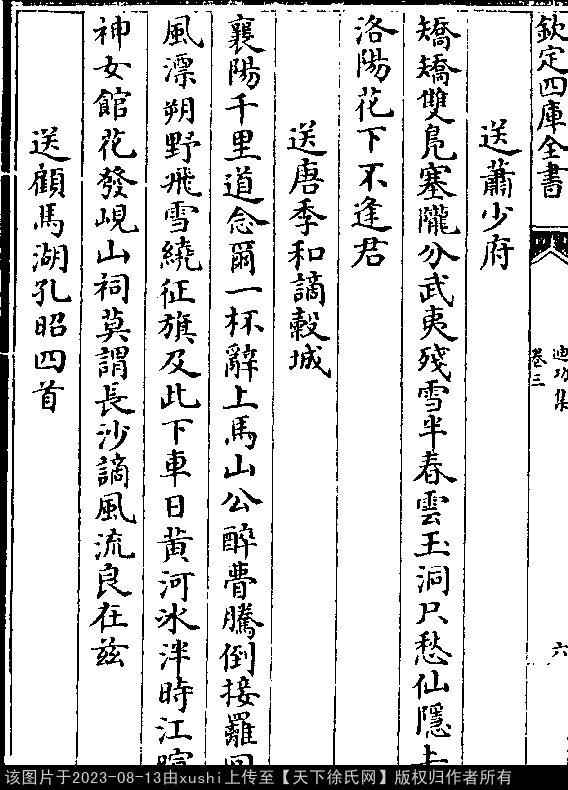 欽定四庫全書
迪功集
卷三
六
送蕭少府
矯矯雙鳧塞隴分武夷殘雪半春雲玉洞只愁仙隱去
洛陽花下不逢君
送唐季和謫穀城
襄陽千里道念爾一杯辭上馬山公醉瞢騰倒接羅
風漂朔野飛雪繞征旗及此下車日黄河冰泮時江
神女館花發峴山祠莫謂長沙謫風流良在兹
送顧馬湖孔昭四首
该图片于2023-08-13由xushi上传至【天下徐氏网】版权归作者所有